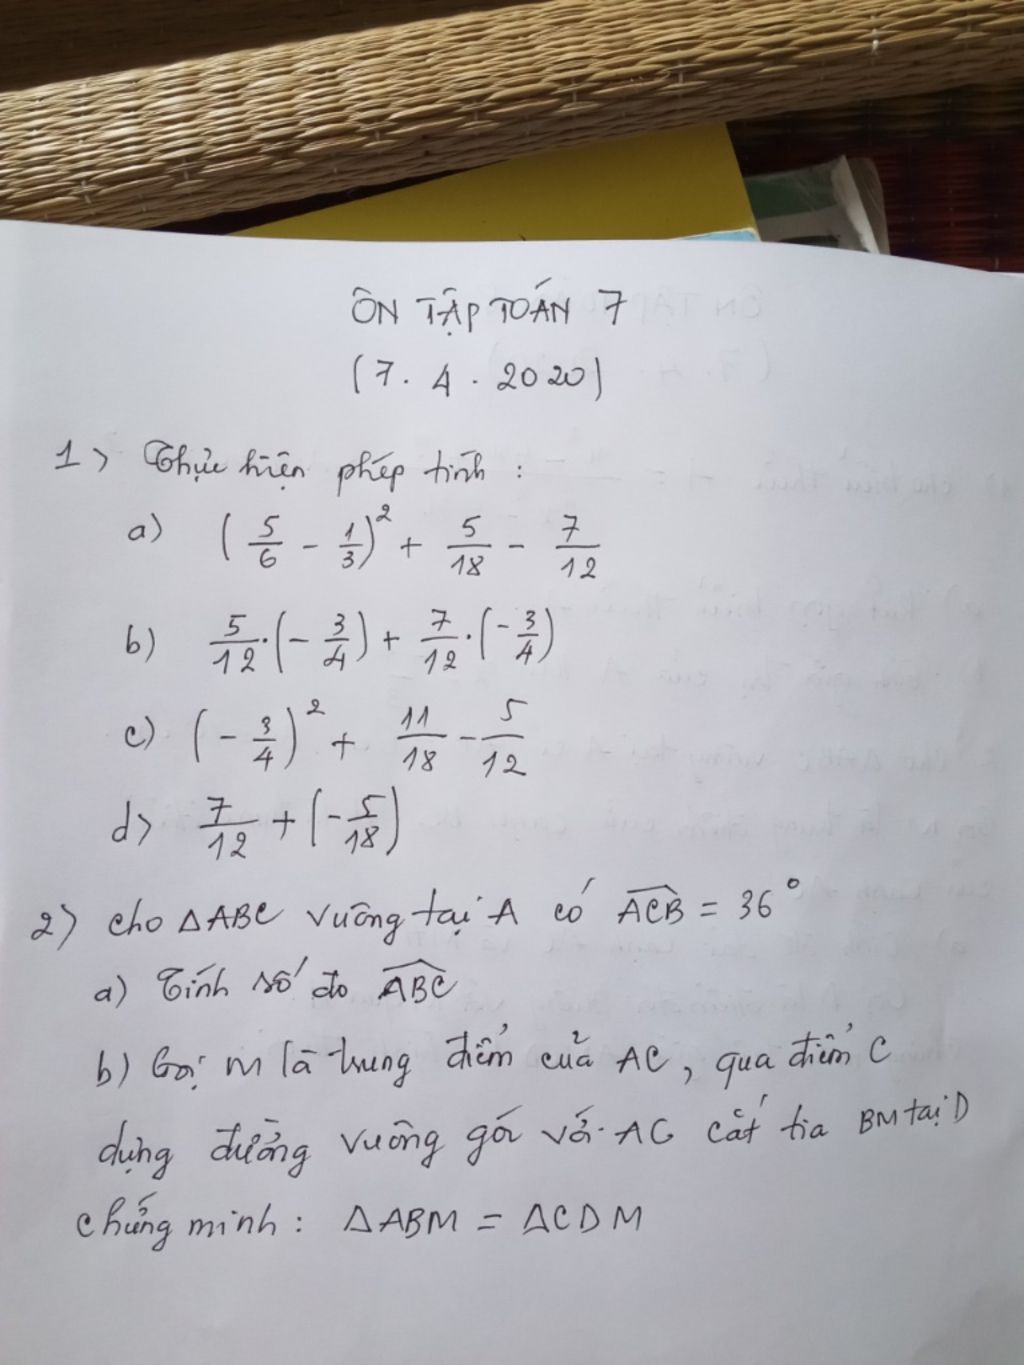 ÔN TẬP TOÁN 7
(7.4.2020)
1> Thực hiện phép tính:
a) (5/6 - 1/3)² + 5/18 - 7/12
b) 5/12.(-3/4) + 7/12.(-3/4)
c) (-3/4)² + 11/18 - 5/12
d> 7/12 + (-5/18)
2) cho ΔABC vuông tại A có ACB = 36°
a) Tính số đo ABC
b) Gọi M là trung điểm của AC, qua điểm C
dựng đường vuông góc với AC cắt tia BM tại D
chứng minh: ΔABM = ΔCDM